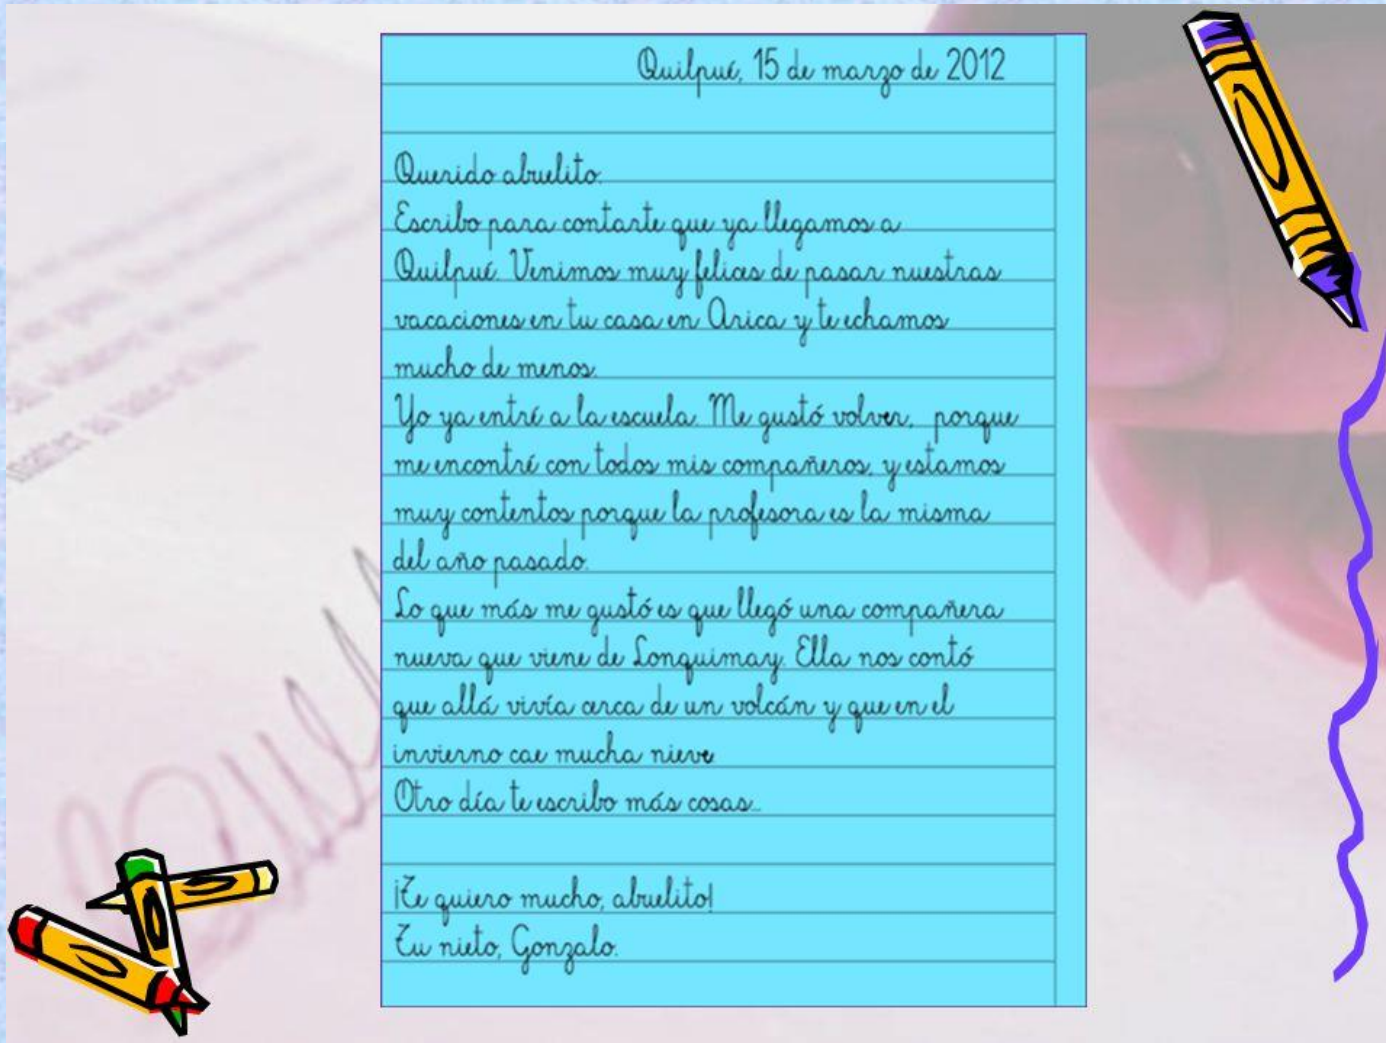 Quilpué, 15 de marzo de 2012
Querido abuelito:
Escribo para contarte que ya llegamos a
Quilpué. Venimos muy felices de pasar nuestras
vacaciones en tu casa en Arica y te echamos
mucho de menos.
Yo ya entré a la escuela. Me gustó volver, porque
me encontré con todos mis compañeros, y estamos
muy contentos porque la profesora es la misma
del año pasado.
Lo que más me gustó es que llegó una compañera
nueva que viene de Lonquimay. Ella nos contó
que allá vivía cerca de un volcán y que en el
invierno cae mucha nieve
Otro día te escribo más cosas...
¡Te quiero mucho, abuelito!
Tu nieto, Gonzalo.